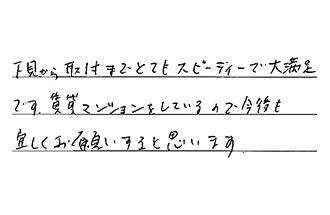 下見から取付までとてもスピーディーで大満足
です。賃貸マンションをしているので今後も
宜しくお願いすると思います。